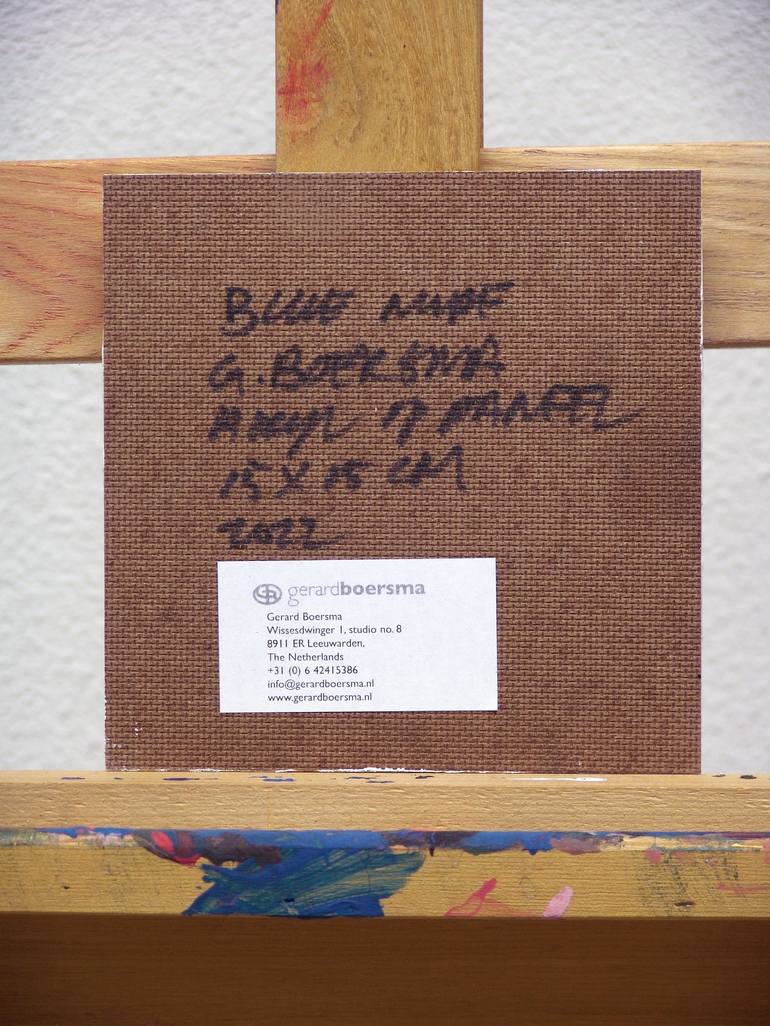 BLUE NUDE
G. BOERSMA
ACRYL OP PANEEL
15 X 15 CM
2022
gerardboersma
Gerard Boersma
Wissesdwinger 1, studio no. 8
8911 ER Leeuwarden,
The Netherlands
+31 (0) 6 42415386
info@gerardboersma.nl
www.gerardboersma.nl